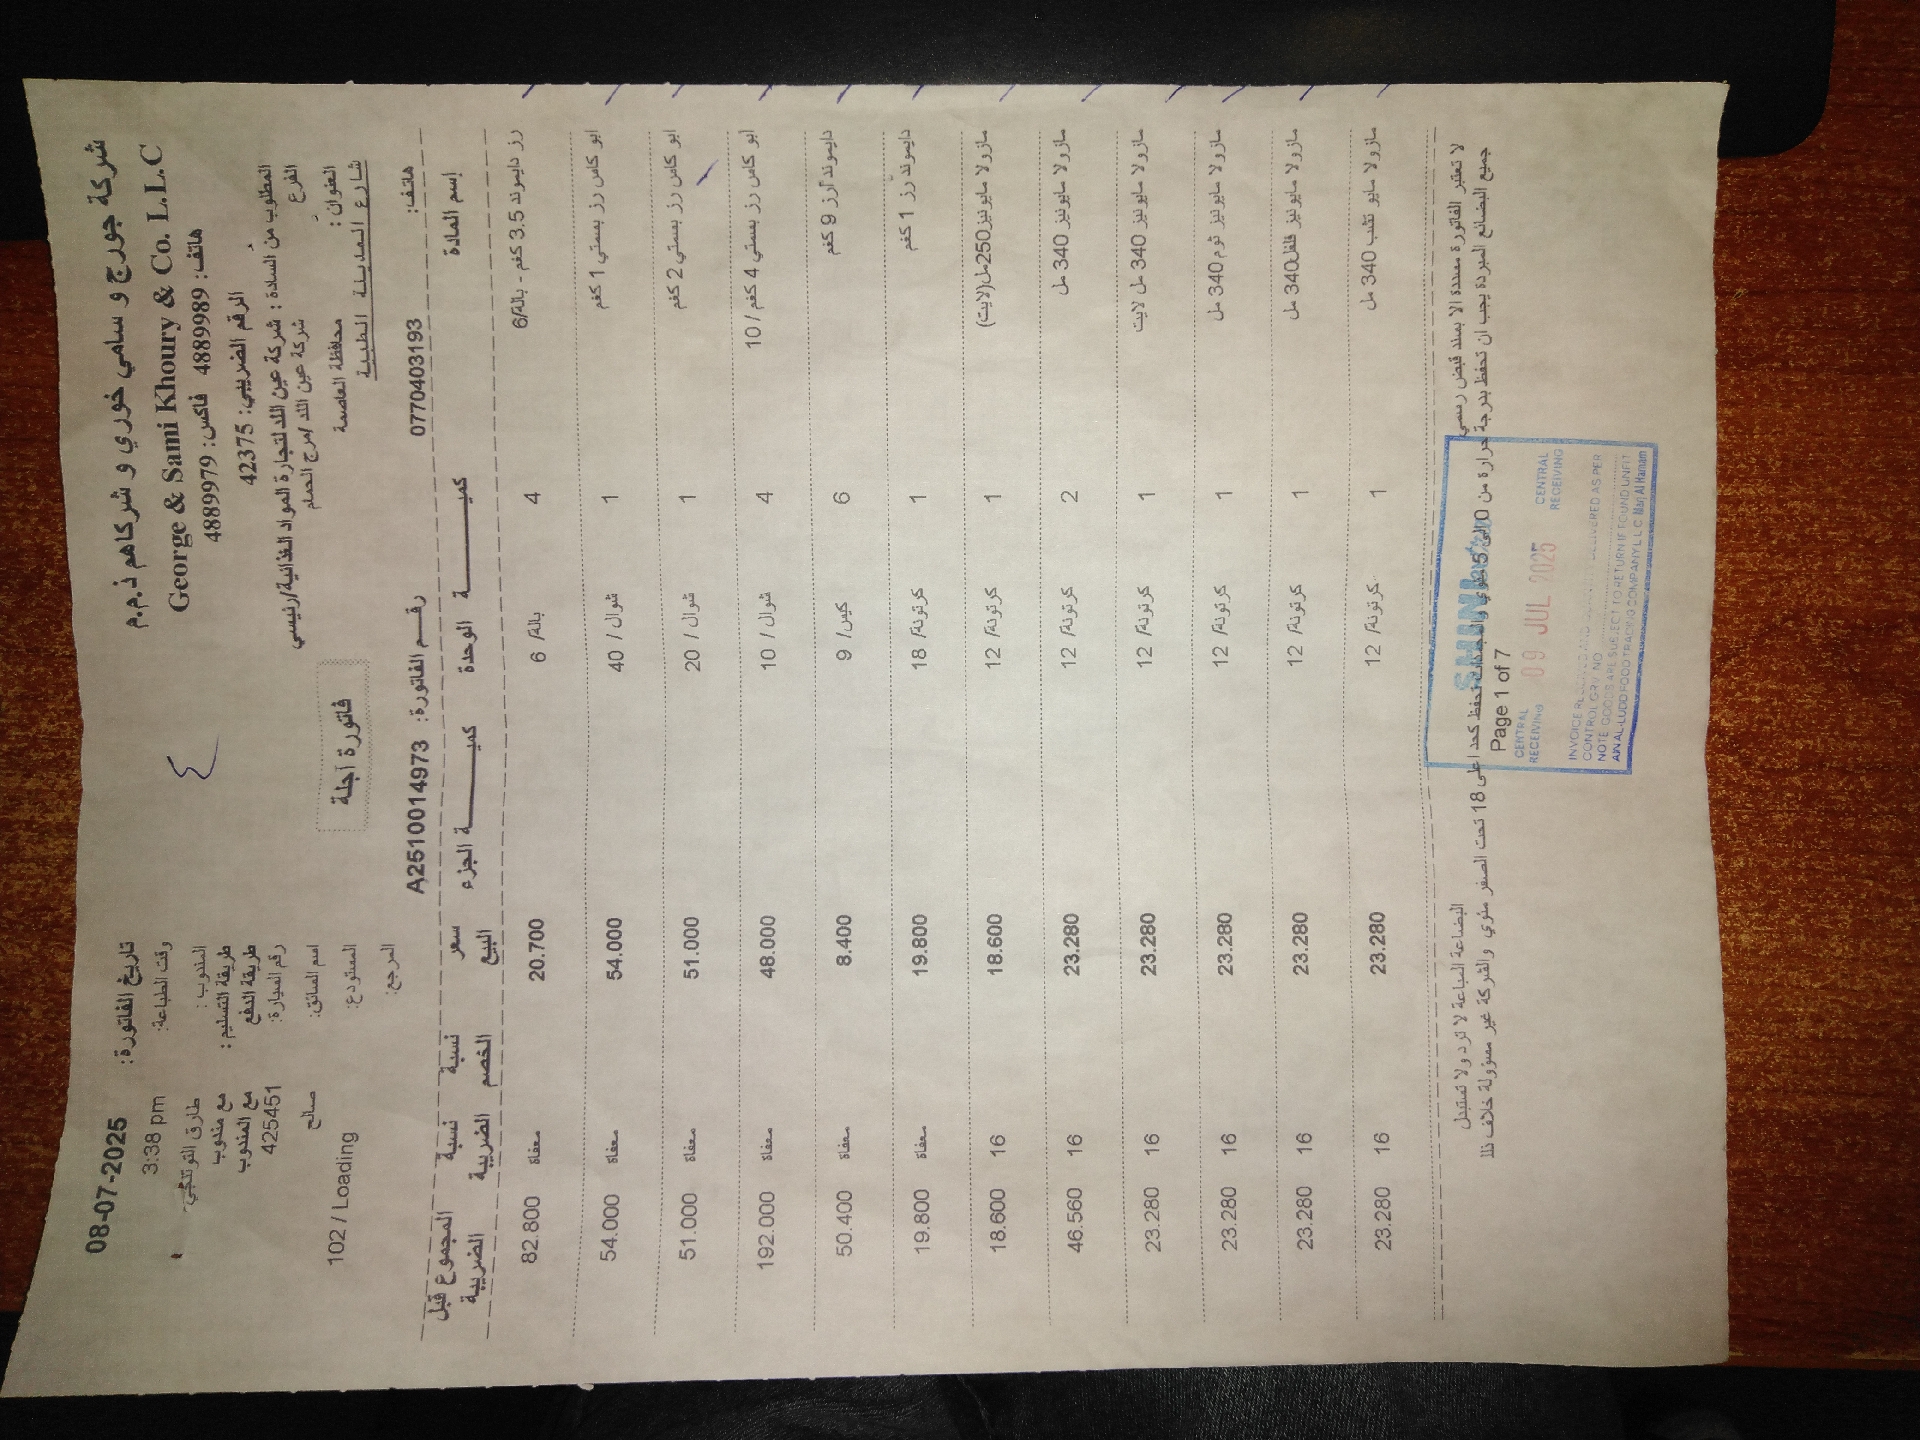 شركة جورج و سامي خوري و شركاهم ذ.م.م
George & Sami Khoury & Co. L.L.C
هاتف: 4889989 فاكس: 4889979
الرقم الضريبي: 42375
المطلوب من السادة : شركة عين اللد لتجارة المواد الغذائية/رئيسي
الفرع شركة عين اللد /مرج الحمام
العنوان : محافظة العاصمة
شارع المدينة الطبية
هاتف: 0770403193
فاتورة آجلة
رقم الفاتورة: A2510014973
٤
تاريخ الفاتورة: 08-07-2025
وقت الطباعة: 3:38 pm
المندوب : طارق
طريقة التسليم : مع مندوب
طريقة الدفع مع المندوب
رقم السيارة: 425451
اسم السائق: صالح
المستودع: 102 / Loading
المرجع:
إسم المادة كميــة الوحدة كميــة الجزء سعر البيع نسبة الخصم نسبة الضريبة المجموع قبل الضريبة
رز دايموند 3.5 كغم - بالة/6 4 بالة/ 6 20.700 معفاة 82.800
ابو كاس رز بسمتي 1 كغم 1 شوال / 40 54.000 معفاة 54.000
ابو كاس رز بسمتي 2 كغم 1 شوال / 20 51.000 معفاة 51.000
ابو كاس رز بسمتي 4 كغم / 10 4 شوال / 10 48.000 معفاة 192.000
دايموند أرز 9 كغم 6 كيس/ 9 8.400 معفاة 50.400
دايموند رز 1 كغم 1 كرتونة/ 18 19.800 معفاة 19.800
مازولا مايونيز250مل(لايت) 1 كرتونة/ 12 18.600 16 18.600
مازولا مايونيز 340 مل 2 كرتونة/ 12 23.280 16 46.560
مازولا مايونيز 340 مل لايت 1 كرتونة/ 12 23.280 16 23.280
مازولا مايونيز ثوم 340 مل 1 كرتونة/ 12 23.280 16 23.280
مازولا مايونيز فلفل340 مل 1 كرتونة/ 12 23.280 16 23.280
مازولا مايو تشب 340 مل 1 كرتونة/ 12 23.280 16 23.280
لا تعتبر الفاتورة مسددة الا بسند قبض رسمي البضاعة المباعة لا ترد ولا تستبدل
جميع البضائع المبردة يجب ان تحفظ بدرجة حرارة من 0 الى 5 تحفظ كحد اعلى 18 تحت الصفر مئوي والشركة غير مسؤولة خلاف ذلك
Page 1 of 7
CENTRAL RECEIVING 09 JUL 2025 CENTRAL RECEIVING
INVOICE RECEIVED AND DELIVERED AS PER
CONTROL GRV NO
NOTE GOODS ARE SUBJECT TO RETURN IF FOUND UNFIT
AINAL-LUDD FOOD TRADING COMPANY L.L.C Marj Al Hamam